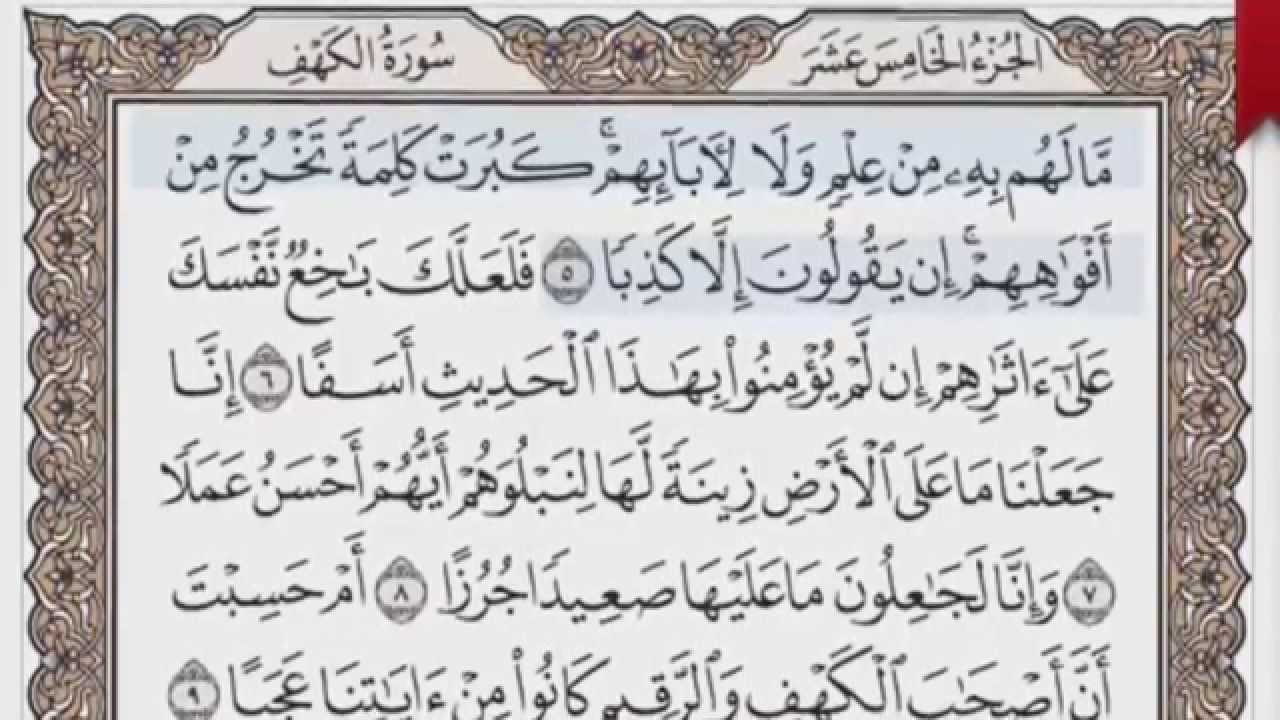 الجُزْءُ الخَامِسَ عَشَرَ
سُورَةُ الكَهْفِ
مَّا لَهُم بِهِۦ مِنْ عِلْمٍ وَلَا لِأٓبَآئِهِمْۚ كَبُرَتْ كَلِمَةً تَخْرُجُ مِنْ
أَفْوَٰهِهِمْۚ إِن يَقُولُونَ إِلَّا كَذِبًا ٥ فَلَعَلَّكَ بَٰخِعٌ نَّفْسَكَ
عَلَىٰٓ ءَاثَٰرِهِمْ إِن لَّمْ يُؤْمِنُوا۟ بِهَٰذَا ٱلْحَدِيثِ أَسَفًا ٦ إِنَّا
جَعَلْنَا مَا عَلَى ٱلْأَرْضِ زِينَةً لَّهَا لِنَبْلُوَهُمْ أَيُّهُمْ أَحْسَنُ عَمَلًا
٧ وَإِنَّا لَجَٰعِلُونَ مَا عَلَيْهَا صَعِيدًا جُرُزًا ٨ أَمْ حَسِبْتَ
أَنَّ أَصْحَٰبَ ٱلْكَهْفِ وَٱلرَّقِيمِ كَانُوا۟ مِنْ ءَايَٰتِنَا عَجَبًا ٩